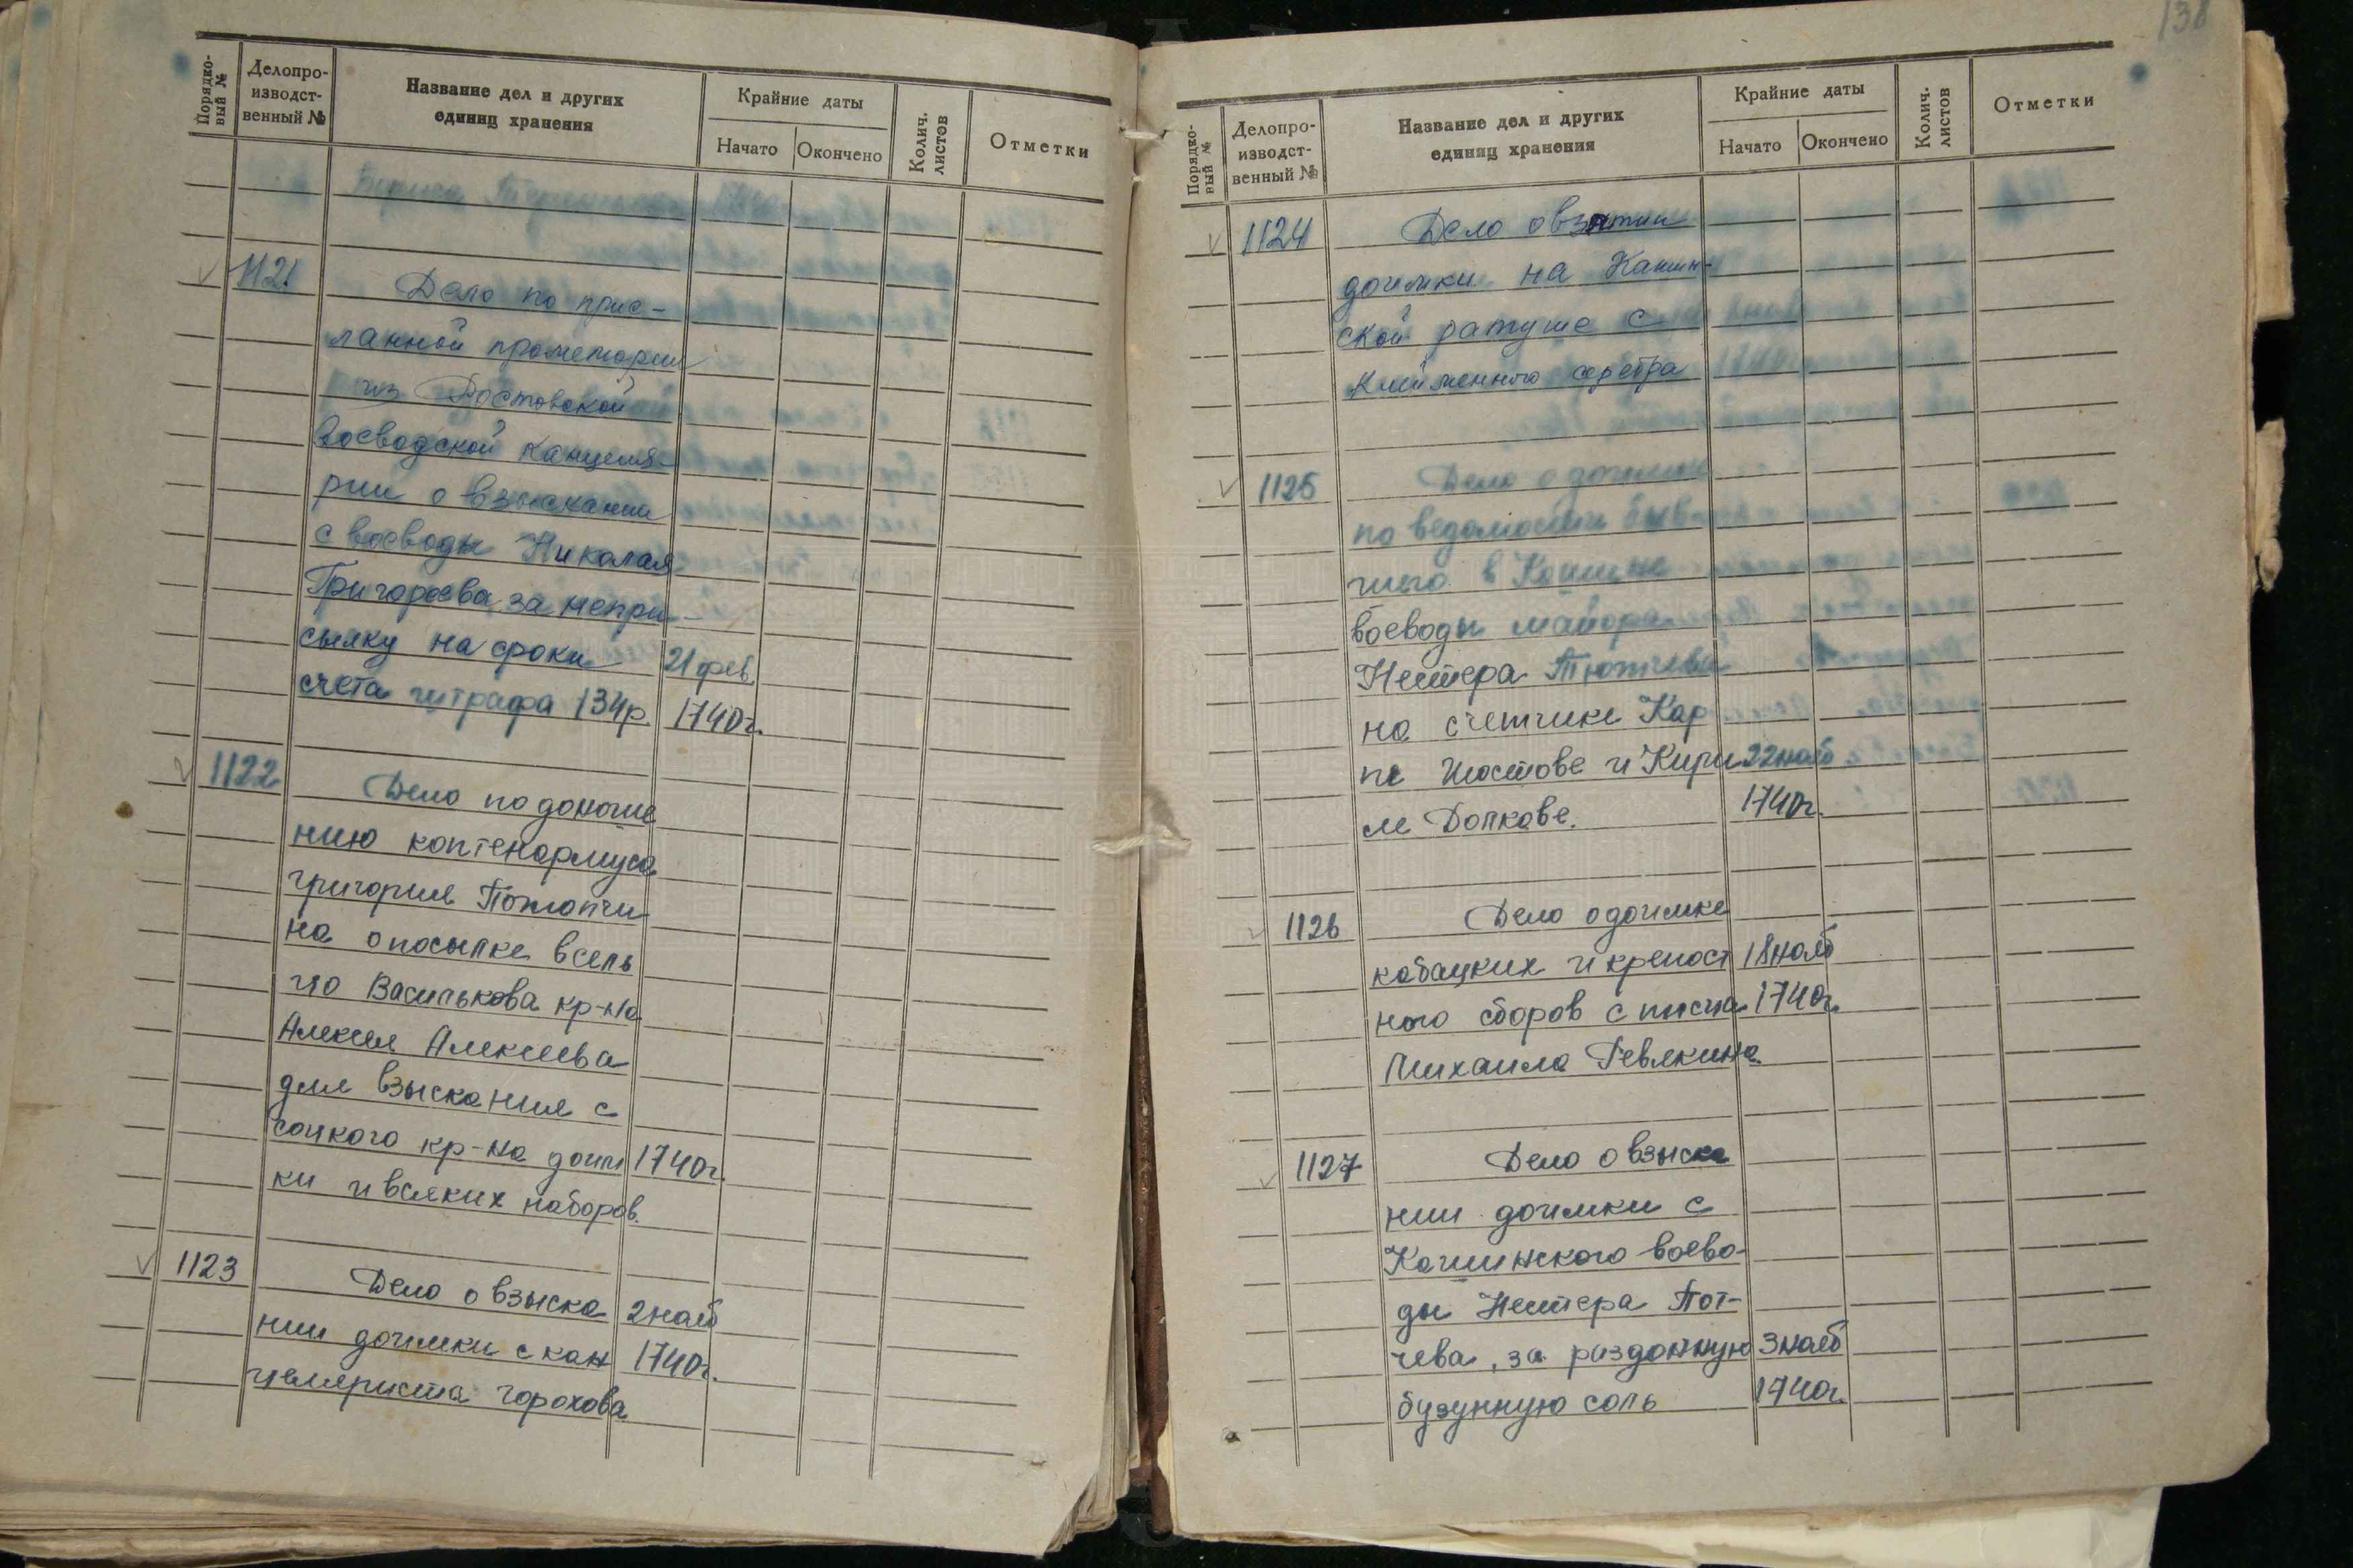 Порядко-
вый №
Делопро-
изводст-
венный №
Название дел и других
единиц хранения
Крайние даты
Начато
Окончено
Колич.
листов
Отметки
Бориса
1121
Дело по прис-
ланной промемории
из Ростовской
воеводской канцеля-
рии о взыскании
с воеводы Николая
Григороева за непри-
сылку на сроки 21 фев.
счета штрафа 134р. 1740г.
1122
Дело по доноше
нию коптенармуса
григория Потопчи
на о посылке в сель
цо Василькова кр-на
Алексея Алексеева
для взыскания с
соцкого кр-на доим 1740г.
ки и всяких наборов.
1123
Дело о взыска 2 нояб
нии доимки с кан 1740г.
целяриста Горохова
138
Порядко-
вый №
Делопро-
изводст-
венный №
Название дел и других
единиц хранения
Крайние даты
Начато
Окончено
Колич.
листов
Отметки
1124
Дело о взятии
доимки на Кашин-
ской ратуше с
клийменного серебра
1125
Дело о доимке
по ведомости быв
шего в Кашине
воеводы майора
Нестера Тютчева
на счетчике Кар
пе Шостове и Кири 22 нояб
ле Долкове. 1740г.
1126
Дело о доимке
кабацких и крепост 18 нояб
ного сборов с писца 1740г.
Михаила Ревякина.
1127
Дело о взыска
нии доимки с
Кашинского воево-
ды Нестера Тют-
чева, за раздонную 3 нояб
бузунную соль 1740г.